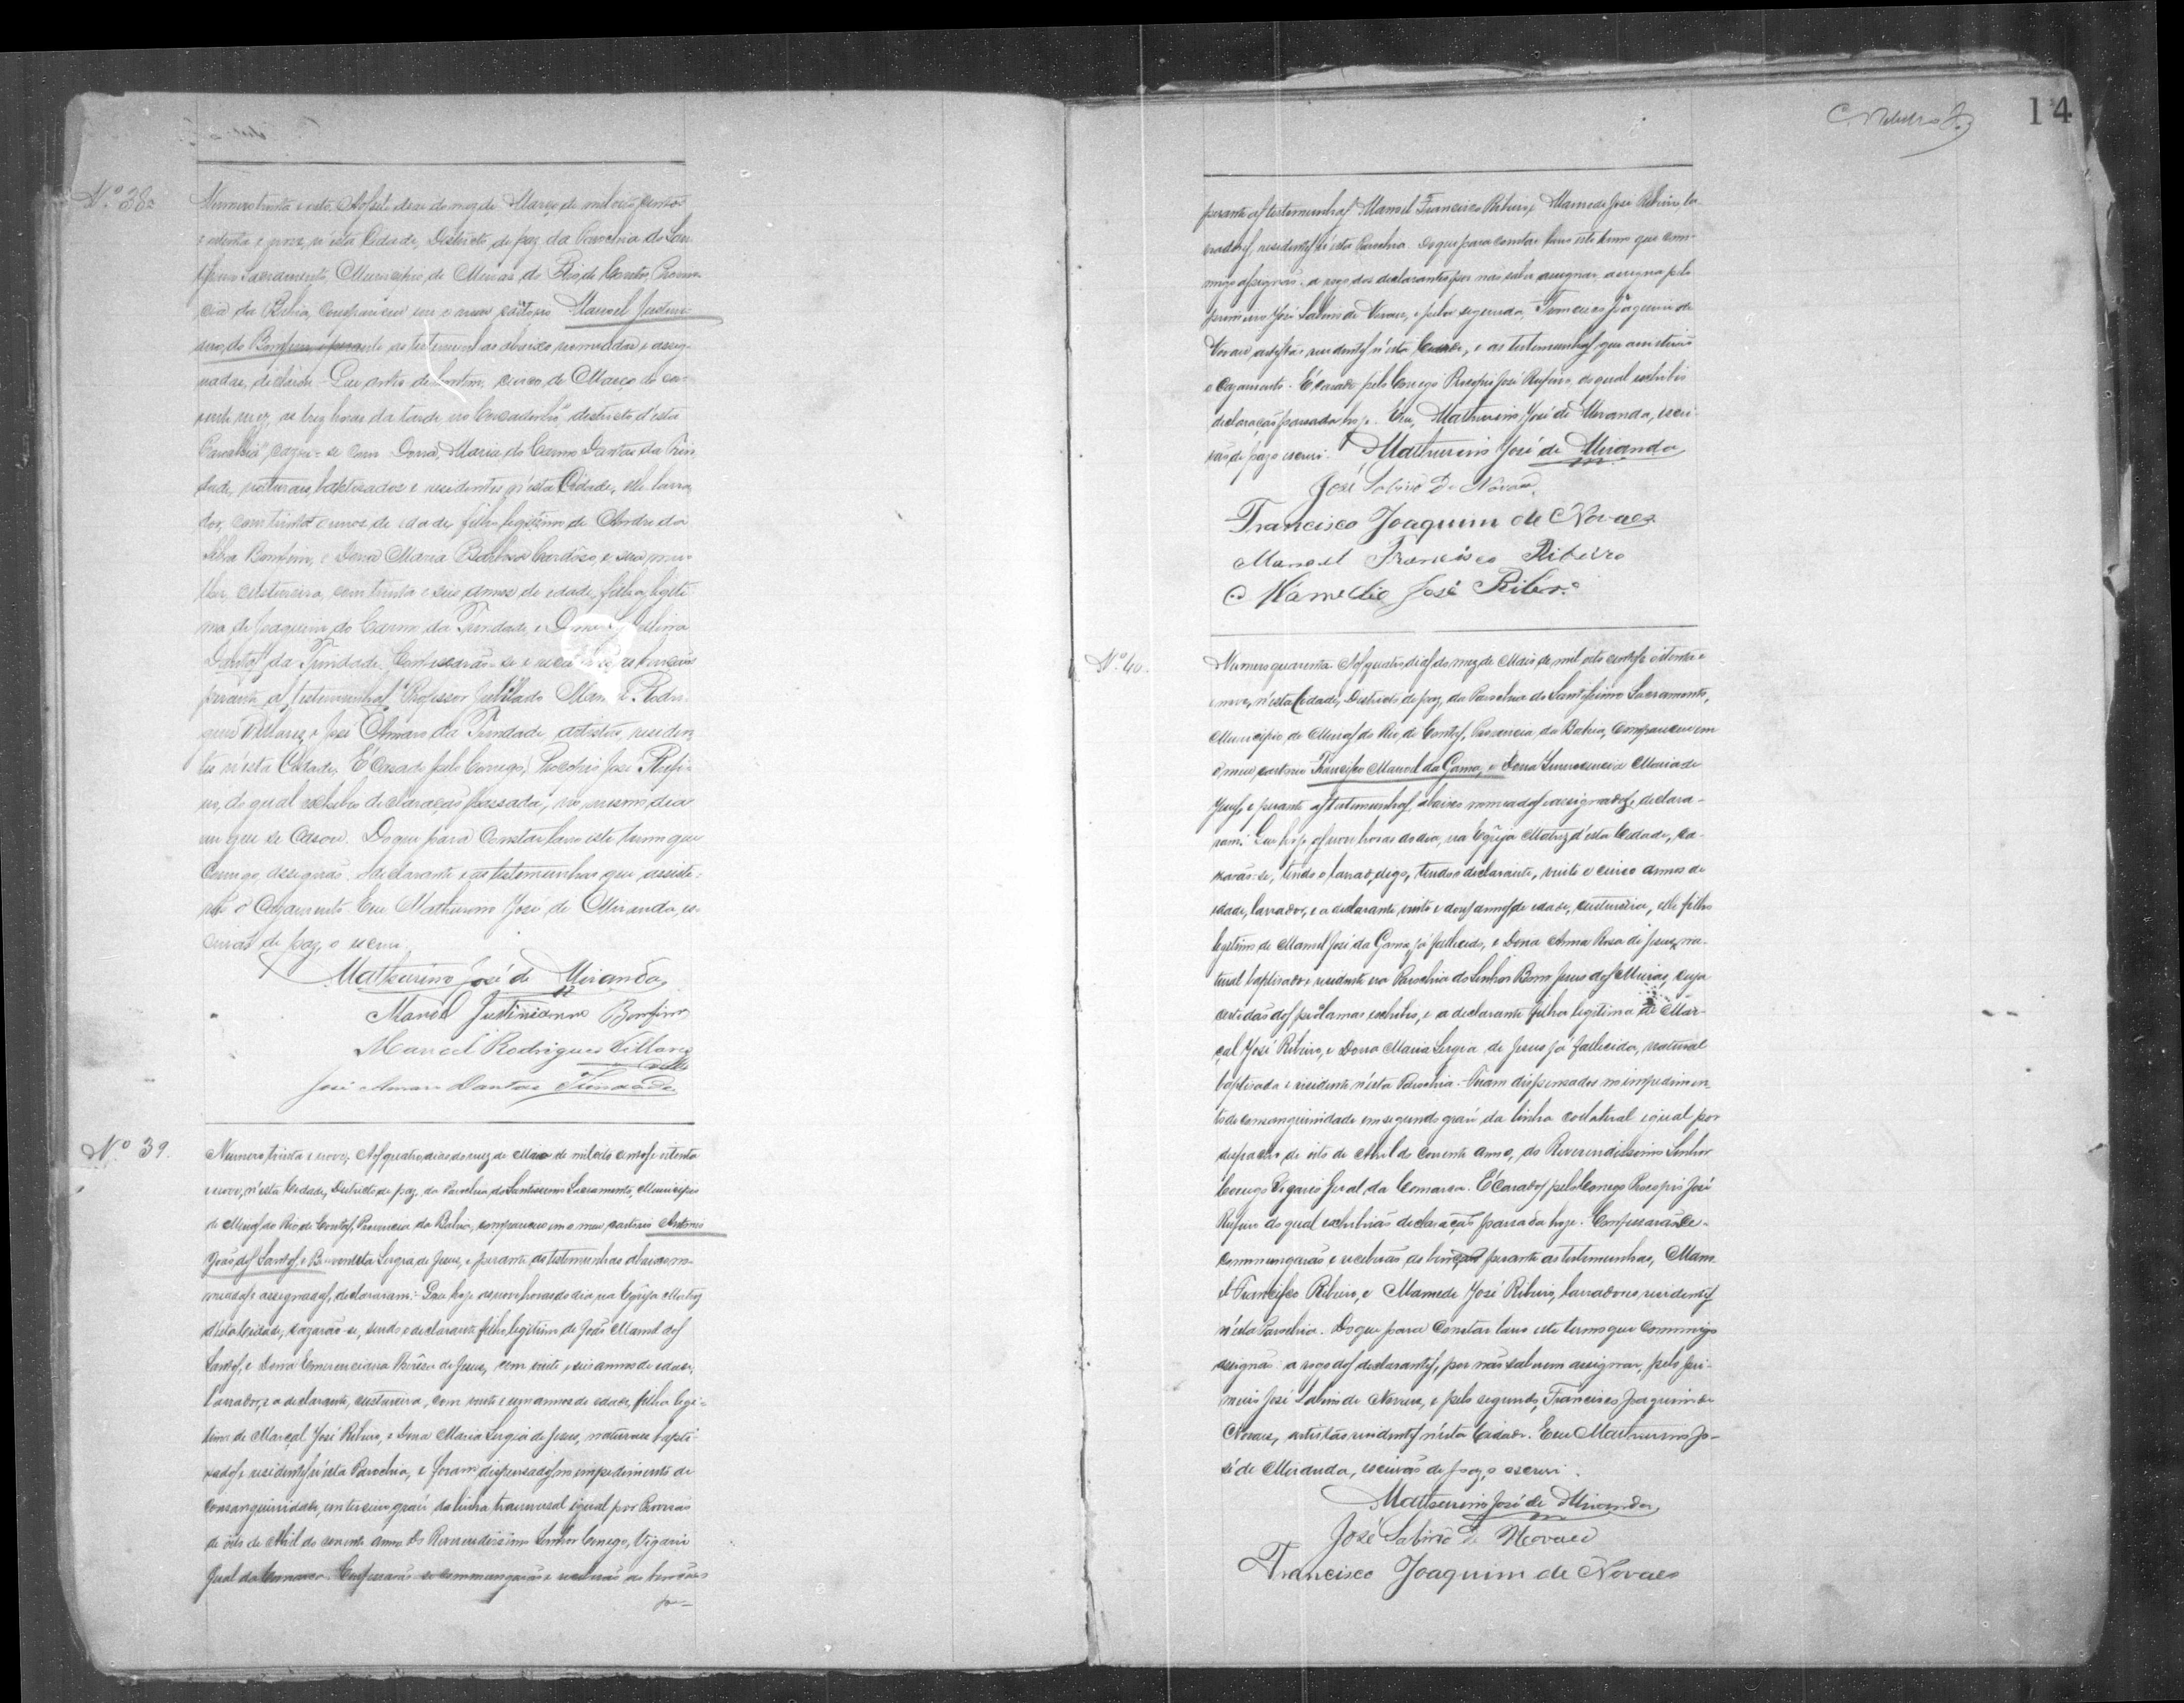 Nº 38.
Numero trinta e oito. Aos sete dias do mez de Março de mil oito centos
e oitenta e nove, n'esta Cidade, Districto de paz da Parochia do San-
tissimo Sacramento, Municipio de Minas do Rio de Contas, Provin-
cia da Bahia, compareceu em o meu cartorio Manoel Justini-
anno do Bomfim e perante as testemunhas abaixo nomeadas e assig-
nadas, declarou: Que antes de hontem, cinco de Março do cor-
rente mez, as trez horas da tarde, no districto d'esta
Parochia, cazou-se com Dona Maria do Carmo Dantas da Trin-
dade, naturaes, baptizados e residentes n'esta Cidade, elle lavra-
dor, com trinta annos de idade, filho legitimo de André da
Silva Bomfim, e Dona Maria Barbosa Cardôzo, e sua mu-
lher, costureira, com trinta e seis annos de edade, filha legiti-
ma de Joaquim do Carmo da Trindade, e
Dantas da Trindade. Confessarão-se e
perante as testemunhas Professor Jubilado Manoel Rodri-
gues Villares, e José Amaro da Trindade, artistas, residen-
tes n'esta Cidade. É Casado pelo Conego, Procopio José Rufi-
no, do qual exhibio declaração passada, no mesmo dia
em que se casou. Do que para Constar lavro este termo que
Comigo assignão, o declarante e as testemunhas que assisti-
rão o Cazamento. Eu Mathurino José de Miranda, es-
crivão de paz, o escrevi.
Mathurino José de Miranda
Manoel Justinianno Bomfim
Manoel Rodrigues Villares
José Amaro Dantas Trindade
Nº 39.
Numero trinta e nove. Aos quatro dias do mez de Maio de mil oito centos e oitenta
e nove, n'esta Cidade, Districto de paz, da Parochia do Santissimo Sacramento, Municipio
de Minas do Rio de Contas, Provincia da Bahia, compareceu em o meu cartorio Antonio
João dos Santos, e Benvendita Sergia de Jesus, e perante as testemunhas abaixo no-
meadas e assignadas, declararam: Que hoje as nove horas do dia, na Egreja Matriz
d'esta Cidade, cazarão-se, sendo o declarante filho legitimo de João Manoel dos
Santos, e Dona Emerenciana de Jesus, com vinte e seis annos de edade,
lavrador, e a declarante, costureira, com vinte e um annos de edade, filha legi-
tima de Marçal José Ribeiro, e Dona Maria Sergia de Jesus, naturaes bapti-
sados e residentes n'esta Parochia, e foram dispensados no impedimento de
consanguinidade, em terceiro gráu da linha transversal igual por Provisão
de oito de Abril do corrente anno do Reverendissimo Senhor Conego, Vigario
Geral da Comarca. Confessarão-se commungarão e receberão as bençãos
pe-
14
perante as testemunhas Manoel Francisco Ribeiro, e Mamede José Ribeiro, la-
vradores, residentes n'esta Parochia. Do que para constar lavro este termo que com-
migo assignão, a rogo dos declarantes por não saber assignar, assigna pelo
primeiro José Sabino de Novaes, e pela segunda, Francisco Joaquim de
Novaes artistas residentes n'esta Cidade, e as testemunhas que assistirão
o Cazamento. É casado pelo Conego Procopio José Rufino, do qual exhibio
declaração passada hoje. Eu, Mathurino José de Miranda, escri-
vão de paz o escrevi. Mathurino José de Miranda
José Sabino de Novaes
Francisco Joaquim de Novaes
Manoel Francisco Ribeiro
Mamedio José Ribeiro
Nº 40.
Numero quarenta. Aos quatro dias do mez de Maio de mil oito centos e oitenta e
e nove, n'esta Cidade, Districto de paz, da Parochia do Santissimo Sacramento,
Municipio de Minas do Rio, de Contas, Provincia da Bahia, Compareceu em
o meu cartorio Francisco Manoel da Gama, e Dona Maria de
Jesus, e perante as testemunhas, abaixo nomeadas e assignadas, declara-
ram: Que hoje, as nove horas do dia, na Egreja Matriz d'esta Cidade, ca-
zarão-se, tendo o lavrad, digo, tendo o declarante, vinte e cinco annos de
idade, lavrador, e a declarante vinte e dous annos de edade, costureira, elle filho
legitimo de Manoel José da Gama, já fallecido, e Dona Anna Rosa de Jesus, na-
tural baptisado e residente na Parochia do Senhor Bom Jesus dos Meiras, cuja
certidão dos proclamas exhibio, e a declarante filha legitima de Mar-
çal José Ribeiro, e Dona Maria Sergia de Jesus já fallecida, natural
baptizada e residente n'esta Parochia. Foram dispensados no impedimen-
to de consanguinidade em segundo gráu da linha collateral igual por
despacho de oito de Abril do corrente anno, do Reverendissimo Senhor
Conego Vigario Geral, da Comarca. É Casados pelo Conego Procopio José
Rufino do qual exhibirão declaração passada hoje. Confessarão-se-
commungarão e receberão as bençãos perante as testemunhas, Mano-
el Francisco Ribeiro, e Mamede José Ribeiro, lavradores, residentes
n'esta Parochia. Do que para Constar lavro este termo que commigo
assignão a rogo dos declarantes, por não saberem assignar, pelo pri-
meiro José Sabino de Novaes, e pela segunda, Francisco Joaquim de
Novaes, artistas residentes n'esta Cidade. Eu Mathurino Jo-
sé de Miranda, escrivão de paz, o escrevi.
Mathurino José de Miranda
José Sabino de Novaes
Francisco Joaquim de Novaes